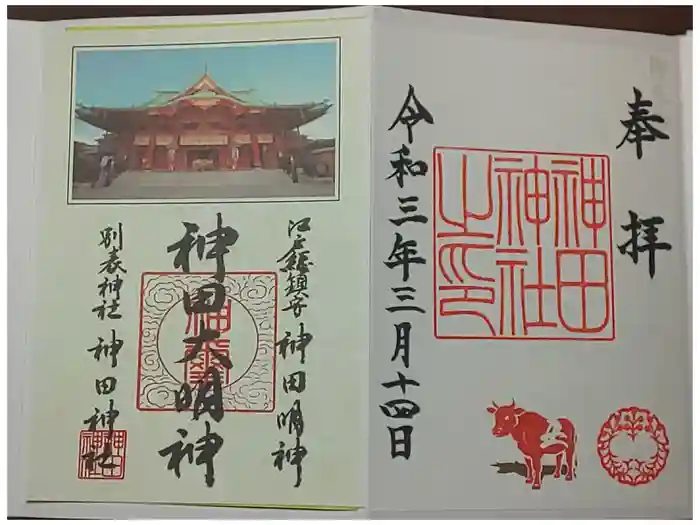 奉拝
神田
神社
之印
令和三年三月十四日
江戸総鎮守 神田明神
神田大明神
別表神社 神田神社
神田
神社